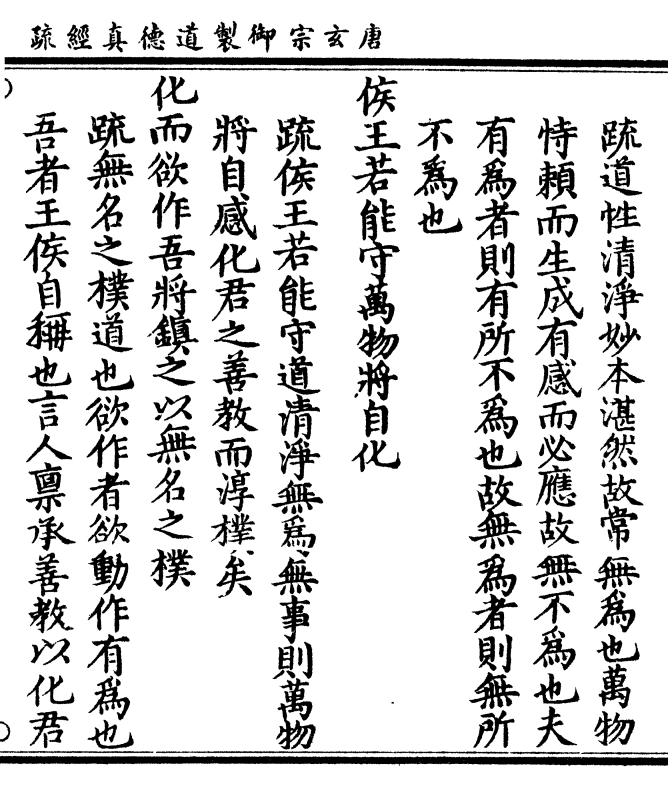 唐玄宗御製道德真經疏
疏道性清淨妙本湛然故常無爲也萬物
恃賴而生成有感而必應故無不爲也夫
有爲者則有所不爲也故無爲者則無所
不爲也
侯王若能守萬物將自化
疏侯王若能守道清淨無爲無事則萬物
將自感化君之善教而淳樸矣
化而欲作吾將鎮之以無名之樸
疏無名之樸道也欲作者欲動作有爲也
吾者王侯自稱也言人禀承善教以化君